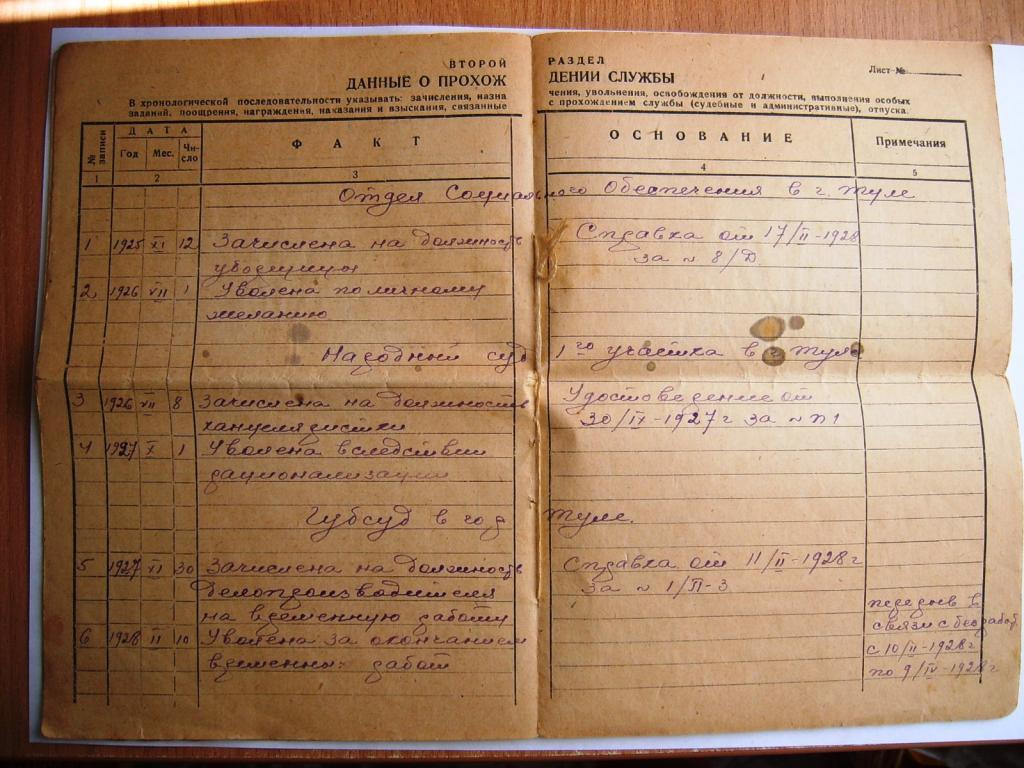 ВТОРОЙ РАЗДЕЛ
ДАННЫЕ О ПРОХОЖДЕНИИ СЛУЖБЫ
Лист №
В хронологической последовательности указывать: зачисления, назначения, увольнения, освобождения от должности, выполнения особых
заданий, поощрения, награждения, наказания и взыскания, связанные с прохождением службы (судебные и административные), отпуска.
№ записи ДАТА ФАКТ ОСНОВАНИЕ Примечания
Год Мес. Число
1 2 3 4 5
Отдел Социального Обеспечения в г. Туле
1 1925 XI 12 Зачислена на должность Справка от 17/II-1928
уборщицы за № 8/Д
2 1926 VII 1 Уволена по личному
желанию
Народный суд 1го участка в г. Туле
3 1926 VII 8 Зачислена на должность Удостоведение от
канцеляристки 30/IX-1927 г за № п1
4 1927 X 1 Уволена вследствии
рационализации
Губсуд в гор Туле.
5 1927 XI 30 Зачислена на должность Справка от 11/II-1928 г
делопроизводителя за № 1/П-3
на временную работу перерыв в
связи с безработ
6 1928 II 10 Уволена за окончанием с 10/II-1928 г
временных работ по 9/IV-1928 г